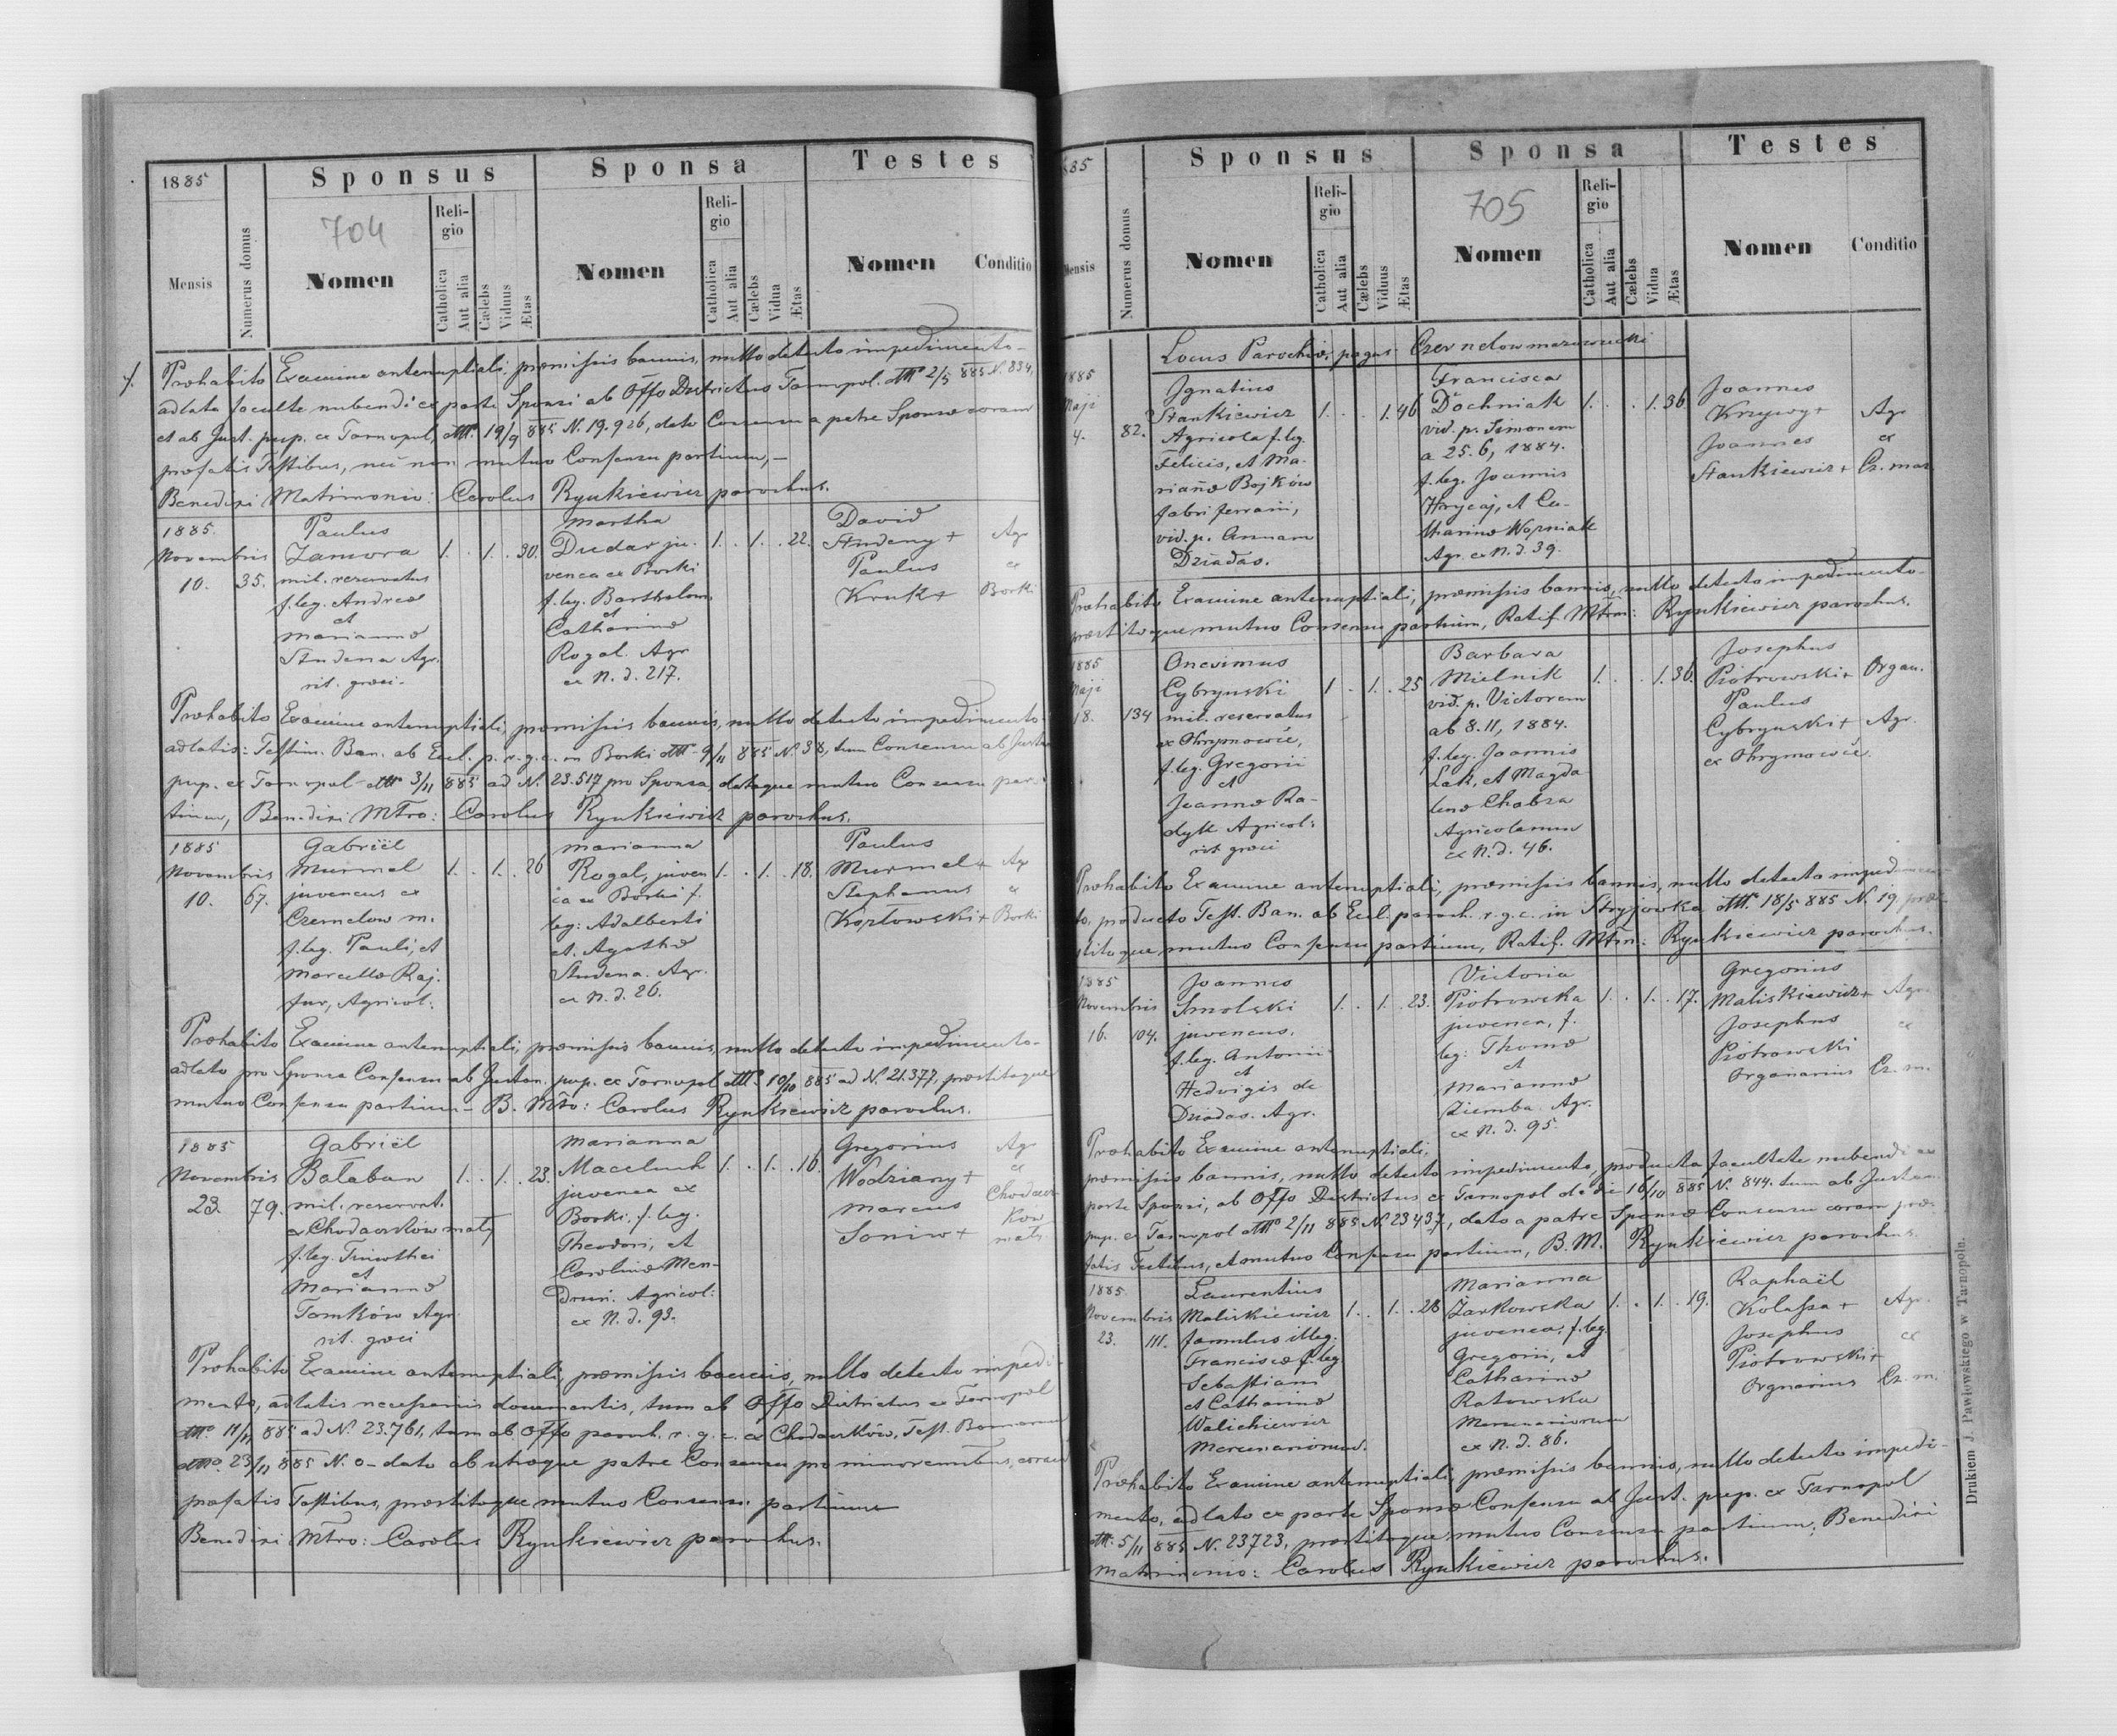 1885
Sponsus
Sponsa
Testes
704
Mensis
Numerus domus
Nomen
Religio
Catholica
Aut alia
Cælebs
Viduus
Ætas
Nomen
Religio
Catholica
Aut alia
Cælebs
Vidua
Ætas
Nomen
Conditio
Præhabito Examine antenuptiali, præmissis bannis, nullo detecto impedimento
adlata facultе nubendi ex parte Sponsi ab Offo Districtus Tarnopol. 2/5 885 N. 834,
et ab Just. pup. ex Tarnopol, 19/9 885 N. 19.926, dato Consensu a patre Sponsæ coram
præfatis Testibus, nec non mutuo Consensu partium,
Benedixi Matrimonio: Carolus Rynkiewicz parochus.
1885. Paulus Martha David
Novembris Zamora 1. . 1. . 30. Dudar ju- 1. . 1. . 22. Studeny + Agr
10. 35. mil. reservatus venca ex Borki Paulus ex
f. leg. Andreæ f. leg. Bartholom. Kruk + Borki
et et
Mariannæ Catharinæ
Studena Agr. Rogal. Agr
rit. græci. ex N. d. 217.
Præhabito Examine antenuptiali, præmissis bannis, nullo detecto impedimento
adlatis: Testim. Ban. ab Eccl. p. r. g. c. in Borki 9/11 885 N. 38, tum Consensu ab Justan
pup. ex Tarnopol 3/11 885 ad N. 23.517 pro Sponsa, datoque mutuo Consensu par
tium, Benedixi Mtro: Carolus Rynkiewicz parochus.
1885 Gabriël Marianna Paulus
Novembris Murmel 1. . 1. . 26 Rogal, juven 1. . 1. . 18. Murmel + Agr
10. 67. juvencus ex ca ex Borki f. Stephanus ex
Czernelow m. leg: Adalberti Kozłowski + Borki
f. leg. Pauli, et et. Agathæ
Marcellæ Raj- Studena. Agr.
fur, Agricol: ex N. d. 26.
Præhabito Examine antenuptiali, præmissis bannis, nullo detecto impedimento
adlato pro Sponsa Consensu ab Justan. pup. ex Tarnopol 10/10 885 ad N. 21.377, præstitoque
mutuo Consensu partium – B. Mtro: Carolus Rynkiewicz parochus.
1885 Gabriël Marianna Gregorius Agr
Novembris Bałaban 1. . 1. . 23. Maceluch 1. . 1. . 16. Wodziany + ex
23. 79. mil. reservat. juvenca ex Marcus Chodacz
ex Chodaczków mały Borki, f. leg. Soniw + ków
f. leg. Timothei Theodori, et mały
et Carolinæ Men-
Mariannæ drun. Agricol:
Tomków Agr. ex N. d. 93.
rit. græci
Præhabito Examine antenuptiali, præmissis bannis, nullo detecto impedi
mento, adlatis necessariis documentis, tum ab Offo Districtus ex Tarnopol
11/11 885 ad N. 23.761, tum ab Offo paroch. r. g. c. ex Chodaczków, Test. Bannorum
23/11 885 N. 0 – dato ab utroque patre Consensu pro minorennibus, coram
præfatis Testibus, præstitoque mutuo Consensu partium
Benedixi Mtro: Carolus Rynkiewicz parochus.
885
Sponsus
Sponsa
Testes
705
Mensis
Numerus domus
Nomen
Religio
Catholica
Aut alia
Cælebs
Viduus
Ætas
Nomen
Religio
Catholica
Aut alia
Cælebs
Vidua
Ætas
Nomen
Conditio
Locus Parochiæ, pagus Czernelow mazowiecki
1885 Ignatius Francisca Joannes
Maji Stankiewicz 1. . . 1. 46 Dochniak 1. . . 1. 36 Krzywy + Agr
4. 82. Agricola f. leg. vid. p. Simonem Joannes ex
Felicis, et Ma- a 25. 6, 1884. Stankiewicz + Cz. maz
riannæ Bojków f. leg. Joannis
fabri ferrarii, Hrycaj, et Ca-
vid. p. Annam tharinæ Woźniak
Dziadas. Agr. ex N. d. 39.
Præhabito Examine antenuptiali, præmissis bannis, nullo detecto impedimento
præstitoque mutuo Consensu partium, Ratif. Mtrm: Rynkiewicz parochus.
1885 Onesimus Barbara Josephus
Maji Cybryński 1 . 1. . 25 Mielnik 1. . . 1. 36. Piotrowski + Organ.
18. 134 mil. reservatus vid. p. Victorem Paulus
ex Ihrymowie, ab 8. 11, 1884. Cybrynski + Agr.
f. leg. Gregorii f. leg. Joannis ex Ihrymowie
et Lak, et Magda
Joannæ Ra- lenæ Chabza
dyk Agricol: Agricolarum
rit græci ex N. d. 46.
Præhabito Examine antenuptiali, præmissis bannis, nullo detecto impedimen
to, producto Test. Ban. ab Eccl. paroch. r. g. c. in Stryjowka 18/5 885 N. 19. præ
stitoque mutuo Consensu partium, Ratif. Mtrm: Rynkiewicz parochus.
1885 Joannes Victoria Gregorius
Novembris Smolski 1. . 1. 23. Piotrowska 1. . 1. . 17. Maliskiewicz + Agr.
16. 104. juvencus, juvenca, f. Josephus ex
f. leg. Antonii leg: Thomæ Piotrowski
et et Organarius Cz. m.
Hedvigis de Mariannæ
Dziadas. Agr. Ziemba. Agr.
ex N. d. 95.
Præhabito Examine antenuptiali,
præmissis bannis, nullo detecto impedimento, producta facultate nubendi ex
parte Sponsi, ab Offo Districtus ex Tarnopol de die 16/10 885 N. 844. tum ab Justan
pup. ex Tarnopol 2/11 885 N. 23437, dato a patre Sponsæ Consensu coram præ-
fatis Testibus, et mutuo Consensu partium, B. M. Rynkiewicz parochus.
1885. Laurentius Marianna Raphaël
Novembris Maliskiewicz 1. . 1. . 28 Żarkowska 1. . 1. . 19. Kolassa + Agr.
23. 111. famulus illeg. juvenca, f. leg. Josephus ex
Franciscæ f. leg. Gregorii, et Piotrowski +
Sebastiani Catharinæ Orgnarius Cz. m.
et Catharinæ Ratowska
Walickiewicz Mercenariorum
Mercenariorum. ex N. d. 86.
Præhabito Examine antenuptiali, præmissis bannis, nullo detecto impedi-
mento, adlato ex parte Sponsæ Consensu ab Just. pup. ex Tarnopol
5/11 885 N. 23723, præstitoque mutuo Consensu partium, Benedixi
Matrimonio: Carolus Rynkiewicz parochus.
Drukiem J. Pawłowskiego w Tarnopolu.